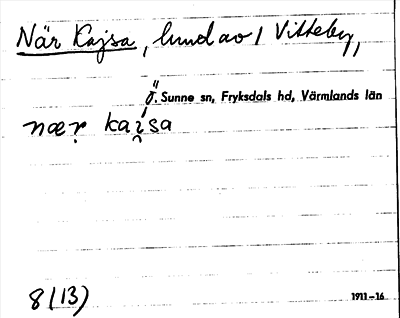 När Kajsa, lund av 1 Vitteby,
Ö. Sunne sn, Fryksdals hd, Värmlands län
næṛ kai̯sa
8(13)
1911-16